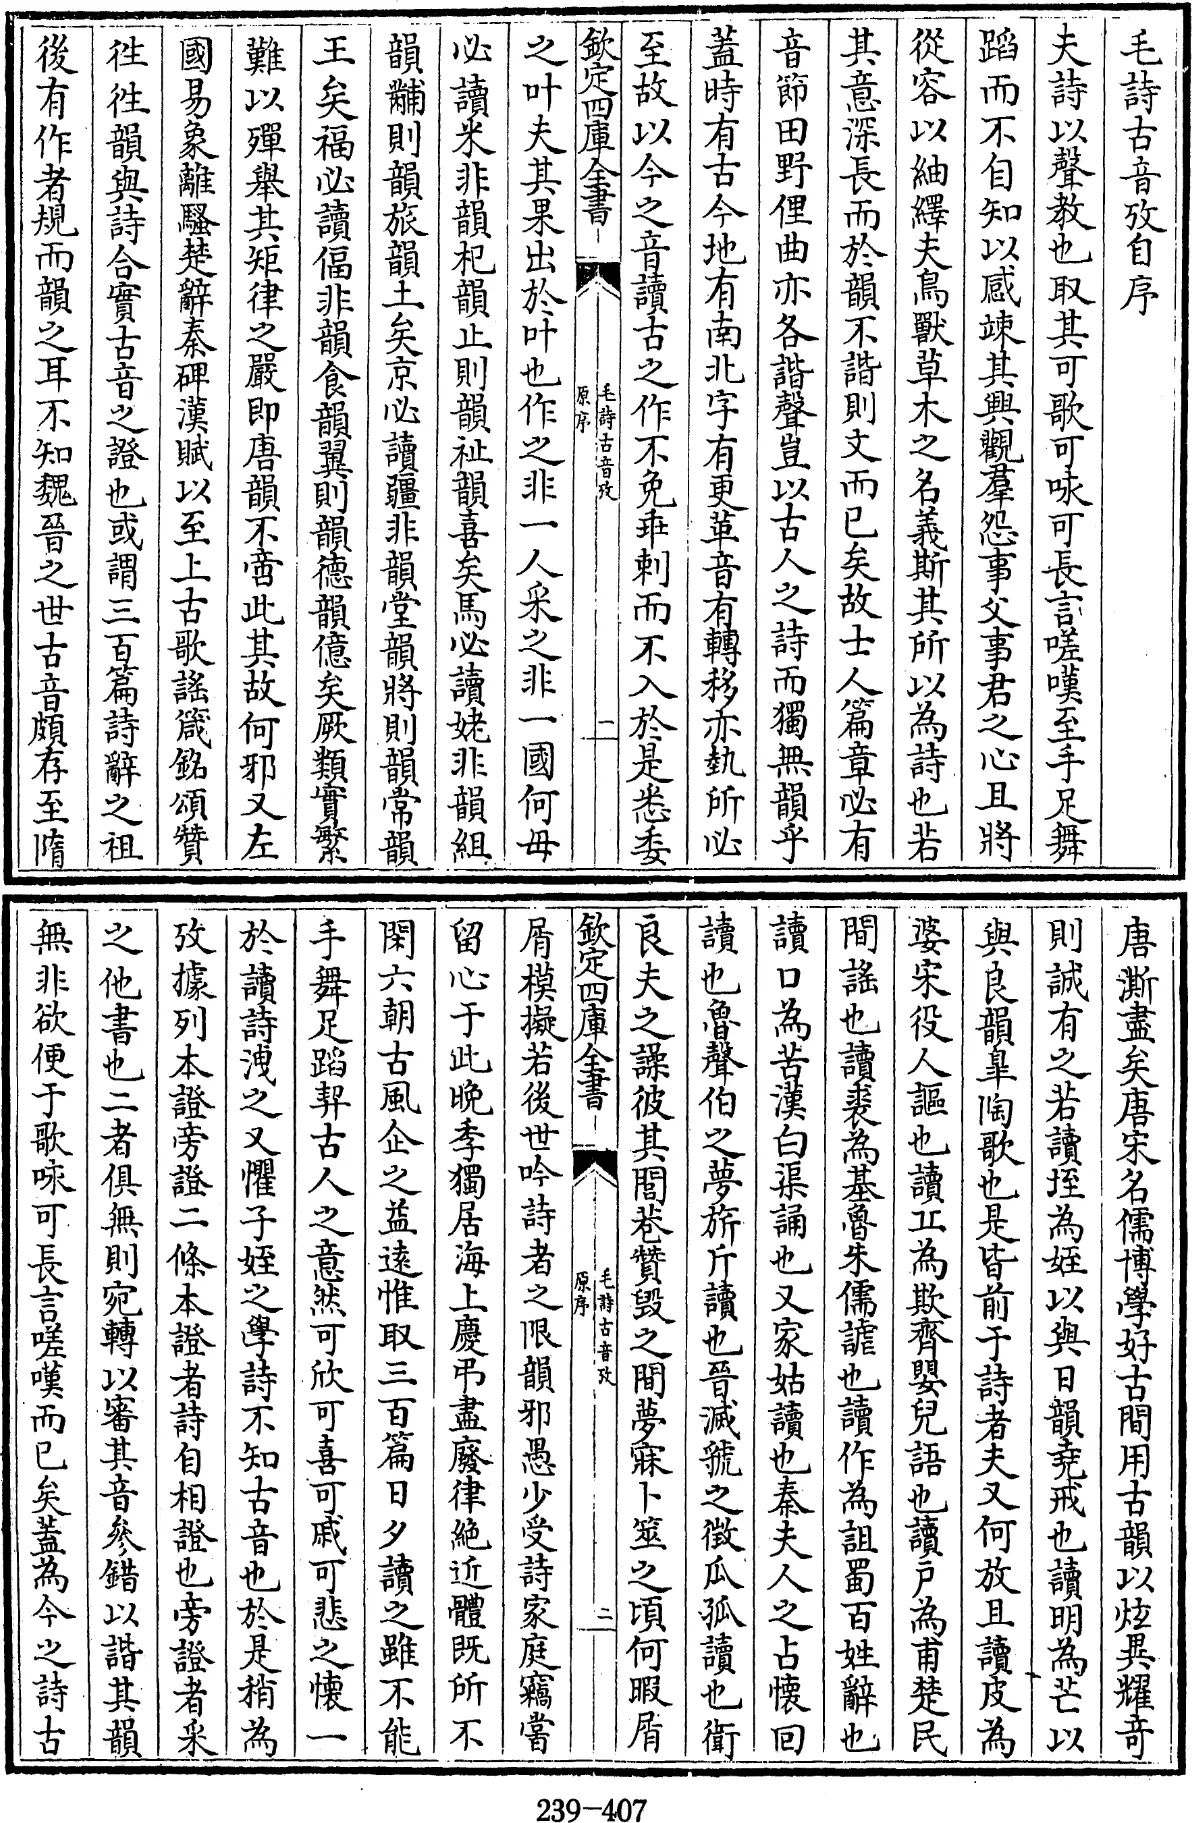 毛詩古音攷自序
夫詩以聲教也取其可歌可咏可長言嗟嘆至手足舞
蹈而不自知以感竦其興觀羣怨事父事君之心且將
從容以紬繹夫鳥獸草木之名義斯其所以為詩也若
其意深長而於韻不諧則文而已矣故士人篇章必有
音節田野俚曲亦各諧聲豈以古人之詩而獨無韻乎
蓋時有古今地有南北字有更革音有轉移亦埶所必
至故以今之音讀古之作不免乖剌而不入於是悉委
欽定四庫全書
毛詩古音攷
原序
一
之叶夫其果出於叶也作之非一人采之非一國何毋
必讀米非韻杞韻止則韻祉韻喜矣馬必讀姥非韻組
韻黼則韻旅韻土矣京必讀疆非韻堂韻將則韻常韻
王矣福必讀偪非韻食韻翼則韻德韻億矣厥類實繁
難以殫舉其矩律之嚴即唐韻不啻此其故何邪又左
國易象離騷楚辭秦碑漢賦以至上古歌謠箴銘頌贊
徃徃韻與詩合實古音之證也或謂三百篇詩辭之祖
後有作者規而韻之耳不知魏晉之世古音頗存至隋
唐澌盡矣唐宋名儒博學好古間用古韻以炫異耀奇
則誠有之若讀垤為姪以與日韻堯戒也讀明為芒以
與良韻臯陶歌也是皆前于詩者夫又何放且讀皮為
婆宋役人謳也讀丘為欺齊嬰兒語也讀戶為甫楚民
間謠也讀裘為基魯朱儒謔也讀作為詛蜀百姓辭也
讀口為苦漢白渠誦也又家姑讀也秦夫人之占懷回
讀也魯聲伯之夢旂斤讀也晉滅虢之徵瓜孤讀也衛
良夫之譟彼其閭巷贊毀之間夢寐卜筮之頃何暇屑
欽定四庫全書
毛詩古音攷
原序
二
屑模擬若後世吟詩者之限韻邪愚少受詩家庭竊嘗
留心于此晚季獨居海上慶弔盡廢律絶近體既所不
閑六朝古風企之益遠惟取三百篇日夕讀之雖不能
手舞足蹈契古人之意然可欣可喜可戚可悲之懷一
於讀詩洩之又懼子姪之學詩不知古音也於是稍為
攷據列本證旁證二條本證者詩自相證也旁證者采
之他書也二者俱無則宛轉以審其音參錯以諧其韻
無非欲便于歌咏可長言嗟嘆而已矣蓋為今之詩古
239-407